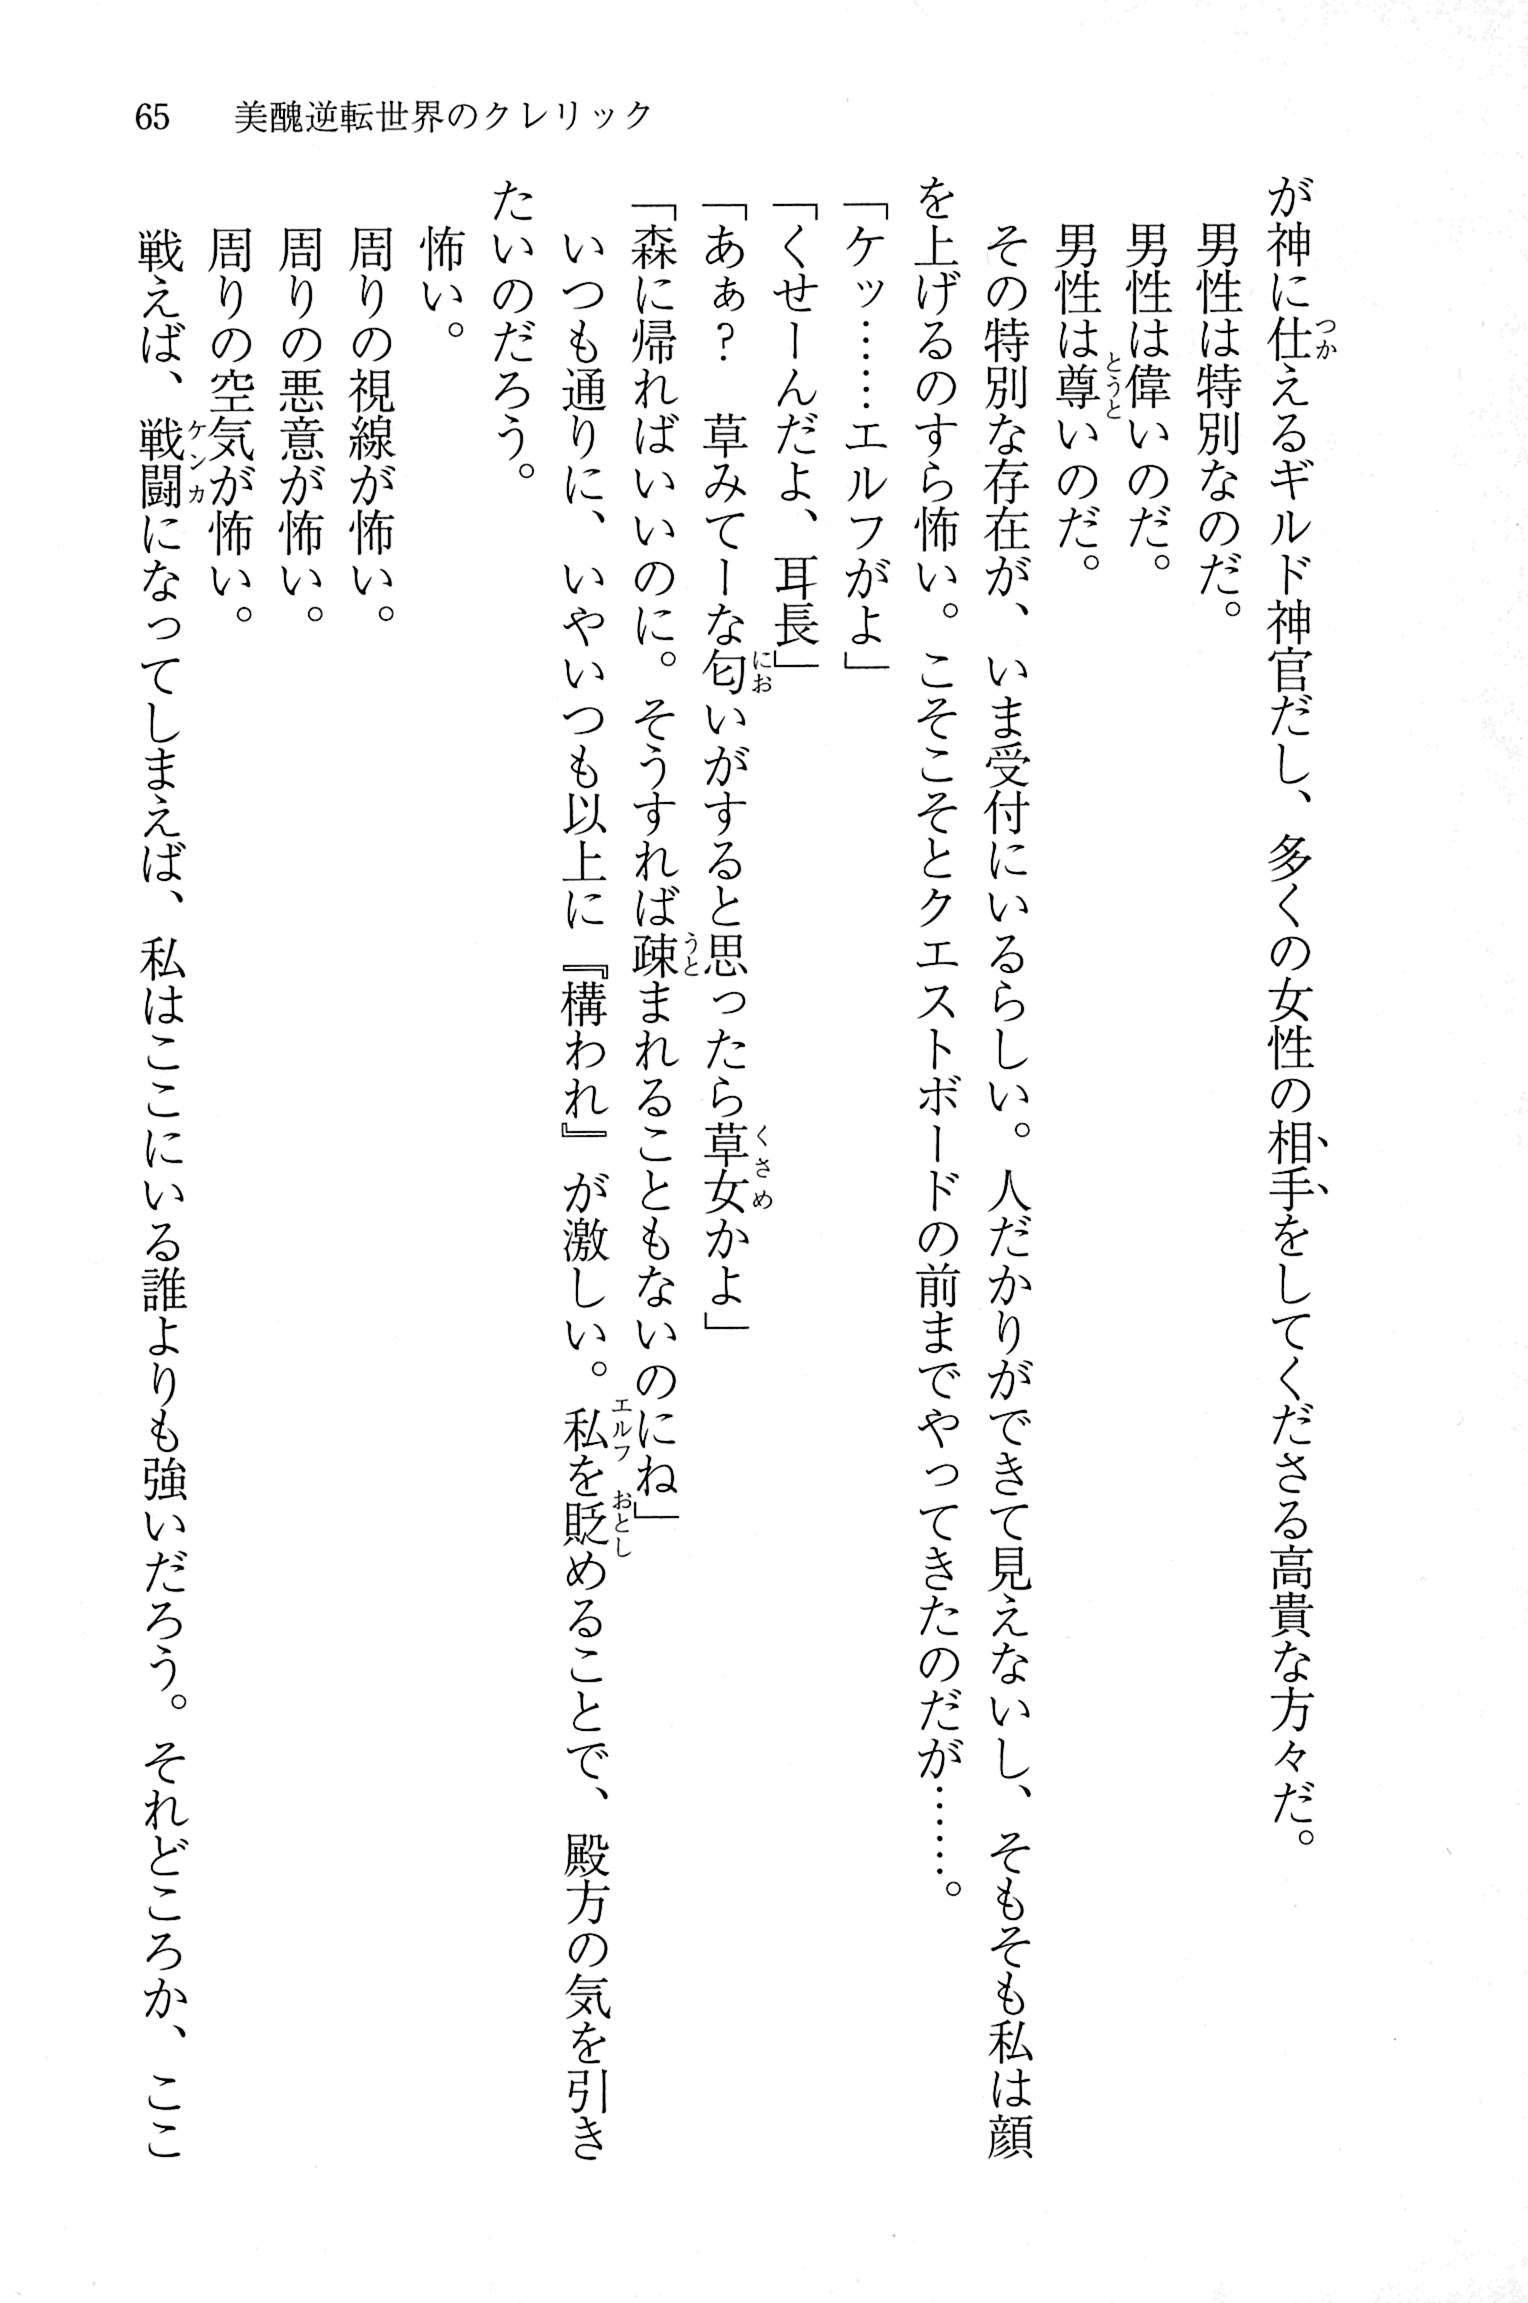 65　美醜逆転世界のクレリック
が神に仕えるギルド神官だし、多くの女性の相手をしてくださる高貴な方々だ。
男性は特別なのだ。
男性は偉いのだ。
男性は尊いのだ。
その特別な存在が、いま受付にいるらしい。人だかりができて見えないし、そもそも私は顔
を上げるのすら怖い。こそこそとクエストボードの前までやってきたのだが……。
「ケッ……エルフがよ」
「くせーんだよ、耳長」
「あぁ？　草みてーな匂いがすると思ったら草女かよ」
「森に帰ればいいのに。そうすれば疎まれることもないのにね」
いつも通りに、いやいつも以上に『構われ』が激しい。私を貶めることで、殿方の気を引き
たいのだろう。
怖い。
周りの視線が怖い。
周りの悪意が怖い。
周りの空気が怖い。
戦えば、戦闘になってしまえば、私はここにいる誰よりも強いだろう。それどころか、ここ